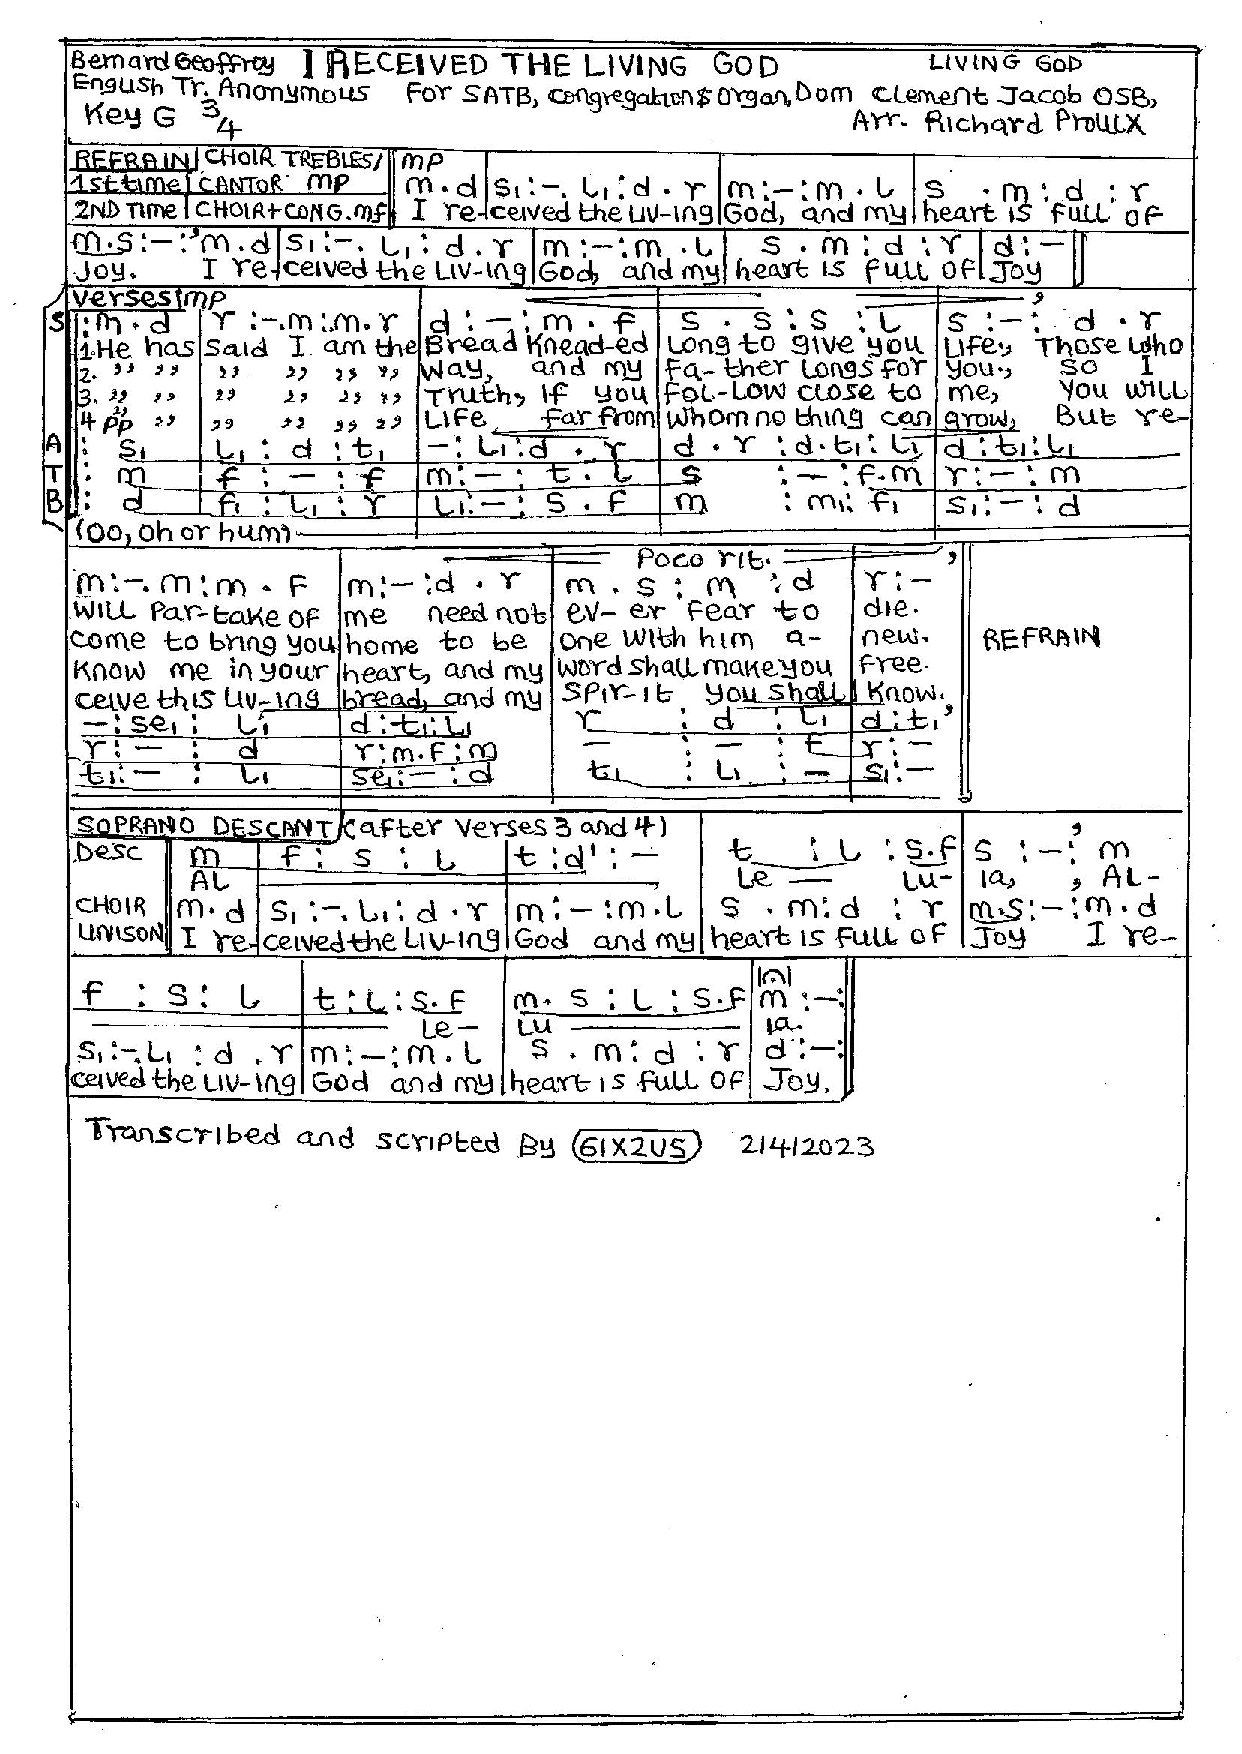 Bernard Geoffroy I RECEIVED THE LIVING GOD LIVING GOD
English Tr. Anonymous For SATB, congregation & Organ, Dom Clement Jacob OSB,
Key G 3/4 Arr. Richard Proulx
REFRAIN CHOIR TREBLES/ mp
1st time CANTOR mp m.d|s₁:-.l₁:d.r|m:-:m.l|s .m:d:r
2ND Time CHOIR+CONG.mf I re-ceived the Liv-ing God, and my heart is full of
m.s:-:'m.d|s₁:-.l₁:d.r|m:-:m.l|s.m:d:r|d:-||
Joy. I re-ceived the Liv-ing God, and my heart is full of Joy
verses mp
S :m.d|r:-.m:m.r|d:-:m.f|s.s:s:l|s:-:d.r
1.He has said I am the Bread Knead-ed Long to give you Life, Those who
2. ,, ,, ,, ,, ,, ,, Way, and my Fa-ther Longs for you., so I
3. ,, ,, ,, ,, ,, ,, Truth, if you Fol-low close to me, you will
4 pp ,, ,, ,, ,, ,, ,, Life, far from whom no thing can grow, But re-
A : s₁|l₁:d:t₁|-:l₁:d.r|d.r:d.t₁:l₁|d:t₁:l₁
T : m|f:-:f|m:-:t.l|s:-:f.m|r:-:m
B : d|f₁:l₁:r|l₁:-:s.f|m:m₁:f₁|s₁:-:d
(oo, oh or hum)
Poco rit. ,
m:-.m:m.f|m:-:d.r|m.s:m:d|r:-
will Par-take of me need not ev-er fear to die.
come to bring you home to be one with him a- new. REFRAIN
Know me in your heart, and my word shall make you free.
ceive this Liv-ing bread, and my spir-it you shall Know.
-:se₁:l₁|d:t₁:l₁|r:d:l₁|d:t₁'
r:-:d|r:m.f:m|-:-:f|r:-
t₁:-:l₁|se₁:-:d|t₁:l₁:-|s₁:-
SOPRANO DESCANT (after verses 3 and 4)
Desc m|f:s:l|t:d':-|t:l:s.f|s:-:'m
AL Le — Lu- ia, , AL-
CHOIR m.d|s₁:-.l₁:d.r|m:-:m.l|s.m:d:r|m.s:-:m.d
UNISON I re-ceived the Liv-ing God and my heart is full of Joy I re-
f:s:l|t:l:s.f|m.s:l:s.f|m:-:
Le- Lu ia.
s₁:-.l₁:d.r|m:-:m.l|s.m:d:r|d:-:
ceived the Liv-ing God and my heart is full of Joy.
Transcribed and scripted By 61X2US 2/4/2023